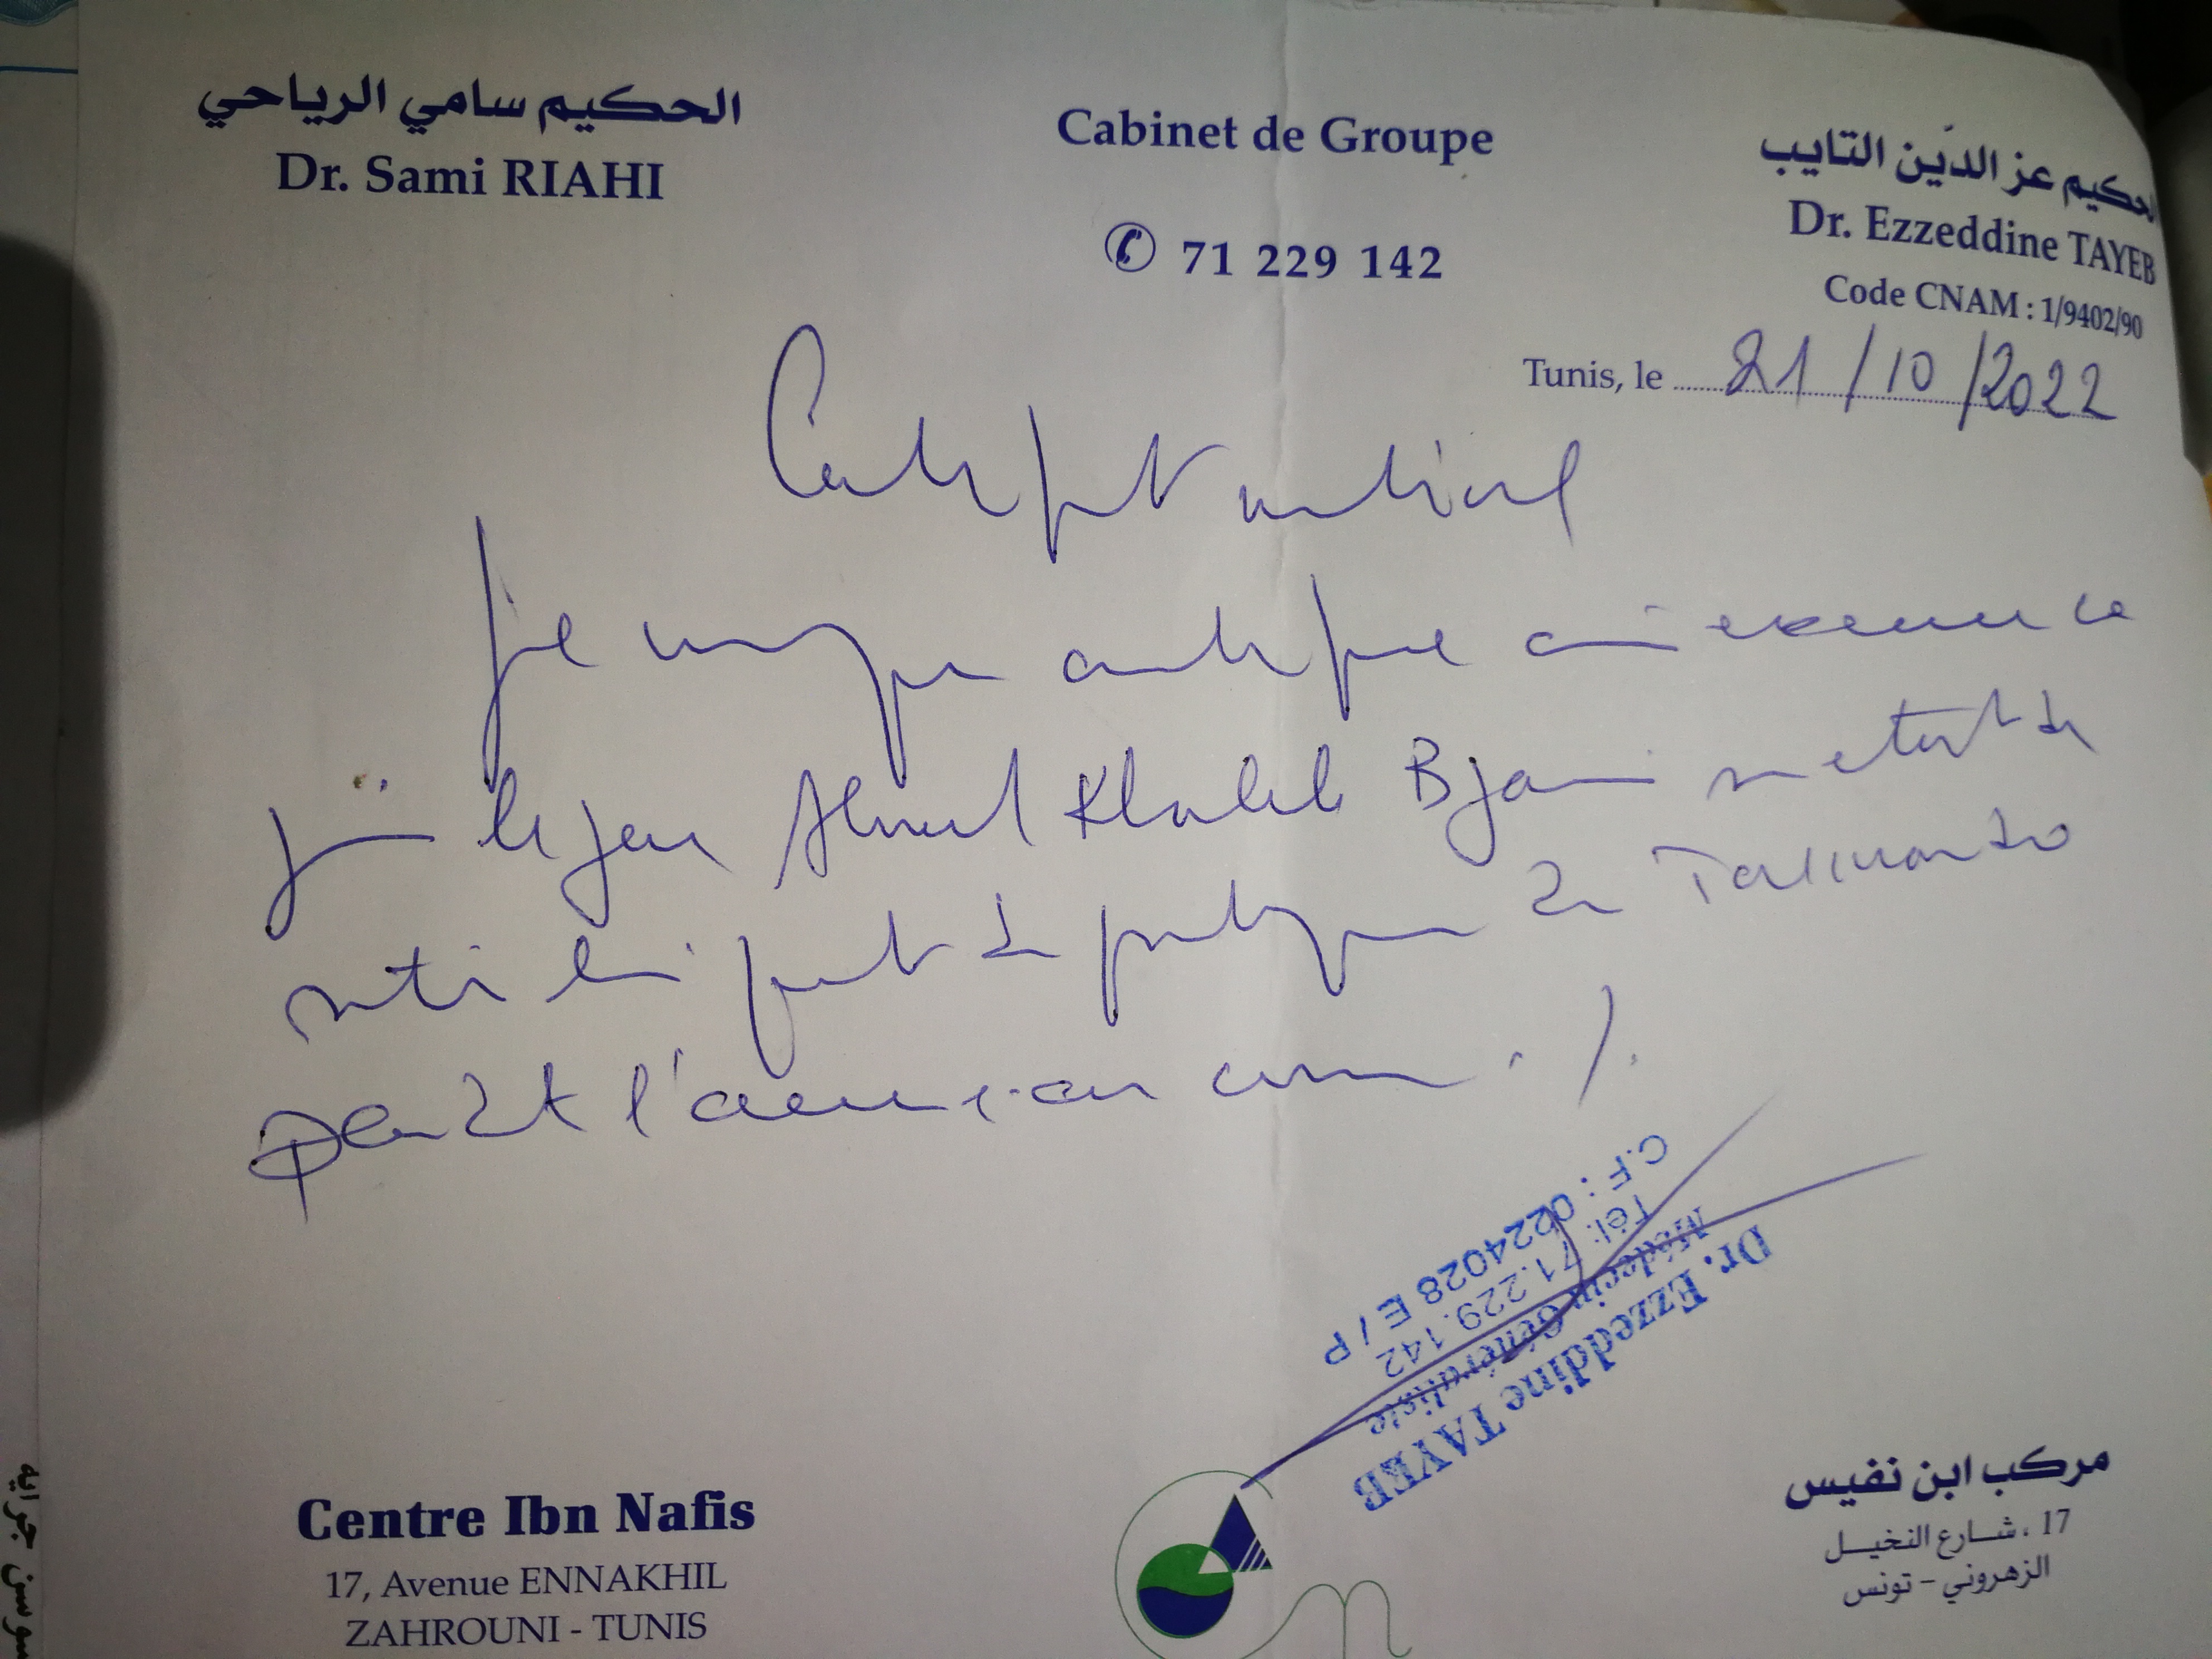 الحكيم سامي الرياحي
Dr. Sami RIAHI
Cabinet de Groupe
71 229 142
الحكيم عز الدّين التايب
Dr. Ezzeddine TAYEB
Code CNAM : 1/9402/90
Tunis, le 21/10/2022
Certificat médical
Je soussigné certifie avoir examiné ce
jour le jeune Ahmed Khalil B Jannet
de pratiquer le Taekwondo
pendant l'année en cours ./.
Dr. Ezzeddine TAYEB
Médecin Généraliste
Tél: 71.229.142
C.F : 0224028 E / P
Centre Ibn Nafis
17, Avenue ENNAKHIL
ZAHROUNI - TUNIS
مركب ابن نفيس
17 ، شارع النخيل
الزهروني - تونس
سوسن جرايه